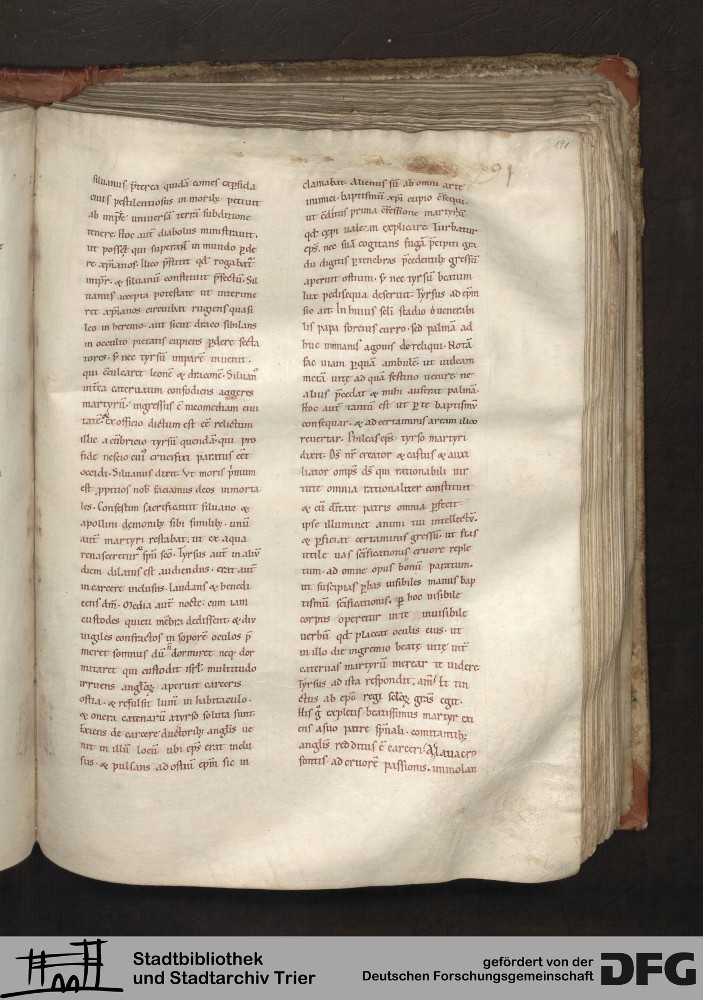 191
91
siluanus p̄terea quidā comes ex p̄fida
eius pestilentiosus in morib; petiuit
ab imp̄r̄e uniuersā terrā subditione
tenere. Hoc aut̄ diabolus ministrauit.
ut posset qui superat̄ in mundo p̄de
re xp̄ianos. Ilico p̄stitit qd̄ rogabat̄
imp̄r. & siluanū constituit p̄fectū. Sil
uanus accepta potestate ut interime
ret xp̄ianos circuibat rugiens quasi
leo in heremo. aut sicut draco sibilans
in occulto pietatis cupiens p̄dere secta
tores. & nec tyrsū imparē inuenit.
qui c̄culcaret leonē & draconē. Siluan᷒
int̄ea cateruatim confodiens aggeres
martyrū. ingressus ē nicomediam ciui
tatē. & ex officio dictum est eē relictum
illic a c̄ubricio tyrsū quendā. qui pro
fide nescio cui᷒ crucifixi paratus eēt
occidi. Siluanus dixit. Vt moris p̄imum
est ꝓpitios nob̄ faciamus deos inmorta
les. Confestim sacrificauit siluano &
apollini demonib; sibi similib;. unū
aut̄ martyri restabat. ut ex aqua
renasceretur & sp̄u sc̄o. Tyrsus aut̄ in aliū
diem dilatus est audiendus. erat aut̄
in carcere inclusus. laudans & benedi
cens dm̄. Media aut̄ nocte. cum iam
custodes quieti mēbra dedissent. & diu
uigiles confractos in soporē oculos p̄
meret somnus dū n̄ dormiret neq; dor
mitaret qui custodit isrl̄. multitudo
irruens angloꝝ aperuit carceris
ostia. & refulsit lum̄ in habitaculo.
& onera catenarū a tyrso soluta sunt.
Exiens de carcere ductorib; anglis ue
nit in illū locū ubi ep̄s erat inclu
sus. & pulsans ad ostiū ep̄m sic in
clamabat. Alienus sū ab omni arte
inimici. baptismū xp̄i cupio c̄sequi.
ut c̄ditus prima c̄fessione martyrū
qd̄ xp̄i ualeam explicare. Turbatur
ep̄s. nec suā cogitans fugā p̄cipiti gra
du digitis p̄ tenebras p̄cedentib; gressū
aperuit ostium. & nec tyrsū beatum
lux pedisequa deseruit. Tyrsus ad ep̄m
sic ait. In huius seli stadio o uenerabi
lis papa forensi curro. sed palmā ad
huc inmanis agonis dereliqui. Notā
fac uiam p̄ quā ambulē ut uideam
metā uitę ad quā festino uenire ne
alius p̄cedat & mihi auferat palmā.
Hoc aut̄ tantū est ut p̄ te baptismū
consequar. & ad certaminis artam ilico
reuertar. Phileas ep̄s tyrso martyri
dixit. Dn̄s nr̄ creator & castus & auxi
liator omps ds̄ qui rationabili uir
tute omnia rationaliter constituit
& cū dn̄itate patris omnia p̄fecit
ipse illuminet animi tui intellectū.
& p̄ficiat certaminis gressū. ut fias
utile uas sc̄ificationis cruore reple
tum. ad omne opus bonū paratum.
ut suscipias p̄ has uisibiles manus bap
tismū sc̄ificationis. & p̄ hoc uisibile
corpus operetur in te inuisibile
uerbū qd̄ placeat oculis eius. ut
in illo die ingremio beatę uitę int̄
cateruas martyrū merear te uidere.
Tyrsus ad ista respondit. am̄. Et tin
ctus ab ep̄o regi seloꝝ grās egit.
His g̊ expletis beatissimus martyr exi
ens a suo patre sp̄uali. comitantib;
anglis redditus ē carceri. A lauacro
fontis ad cruorē passionis. immolan
Stadtbibliothek
und Stadtarchiv Trier
gefördert von der
Deutschen Forschungsgemeinschaft
DFG